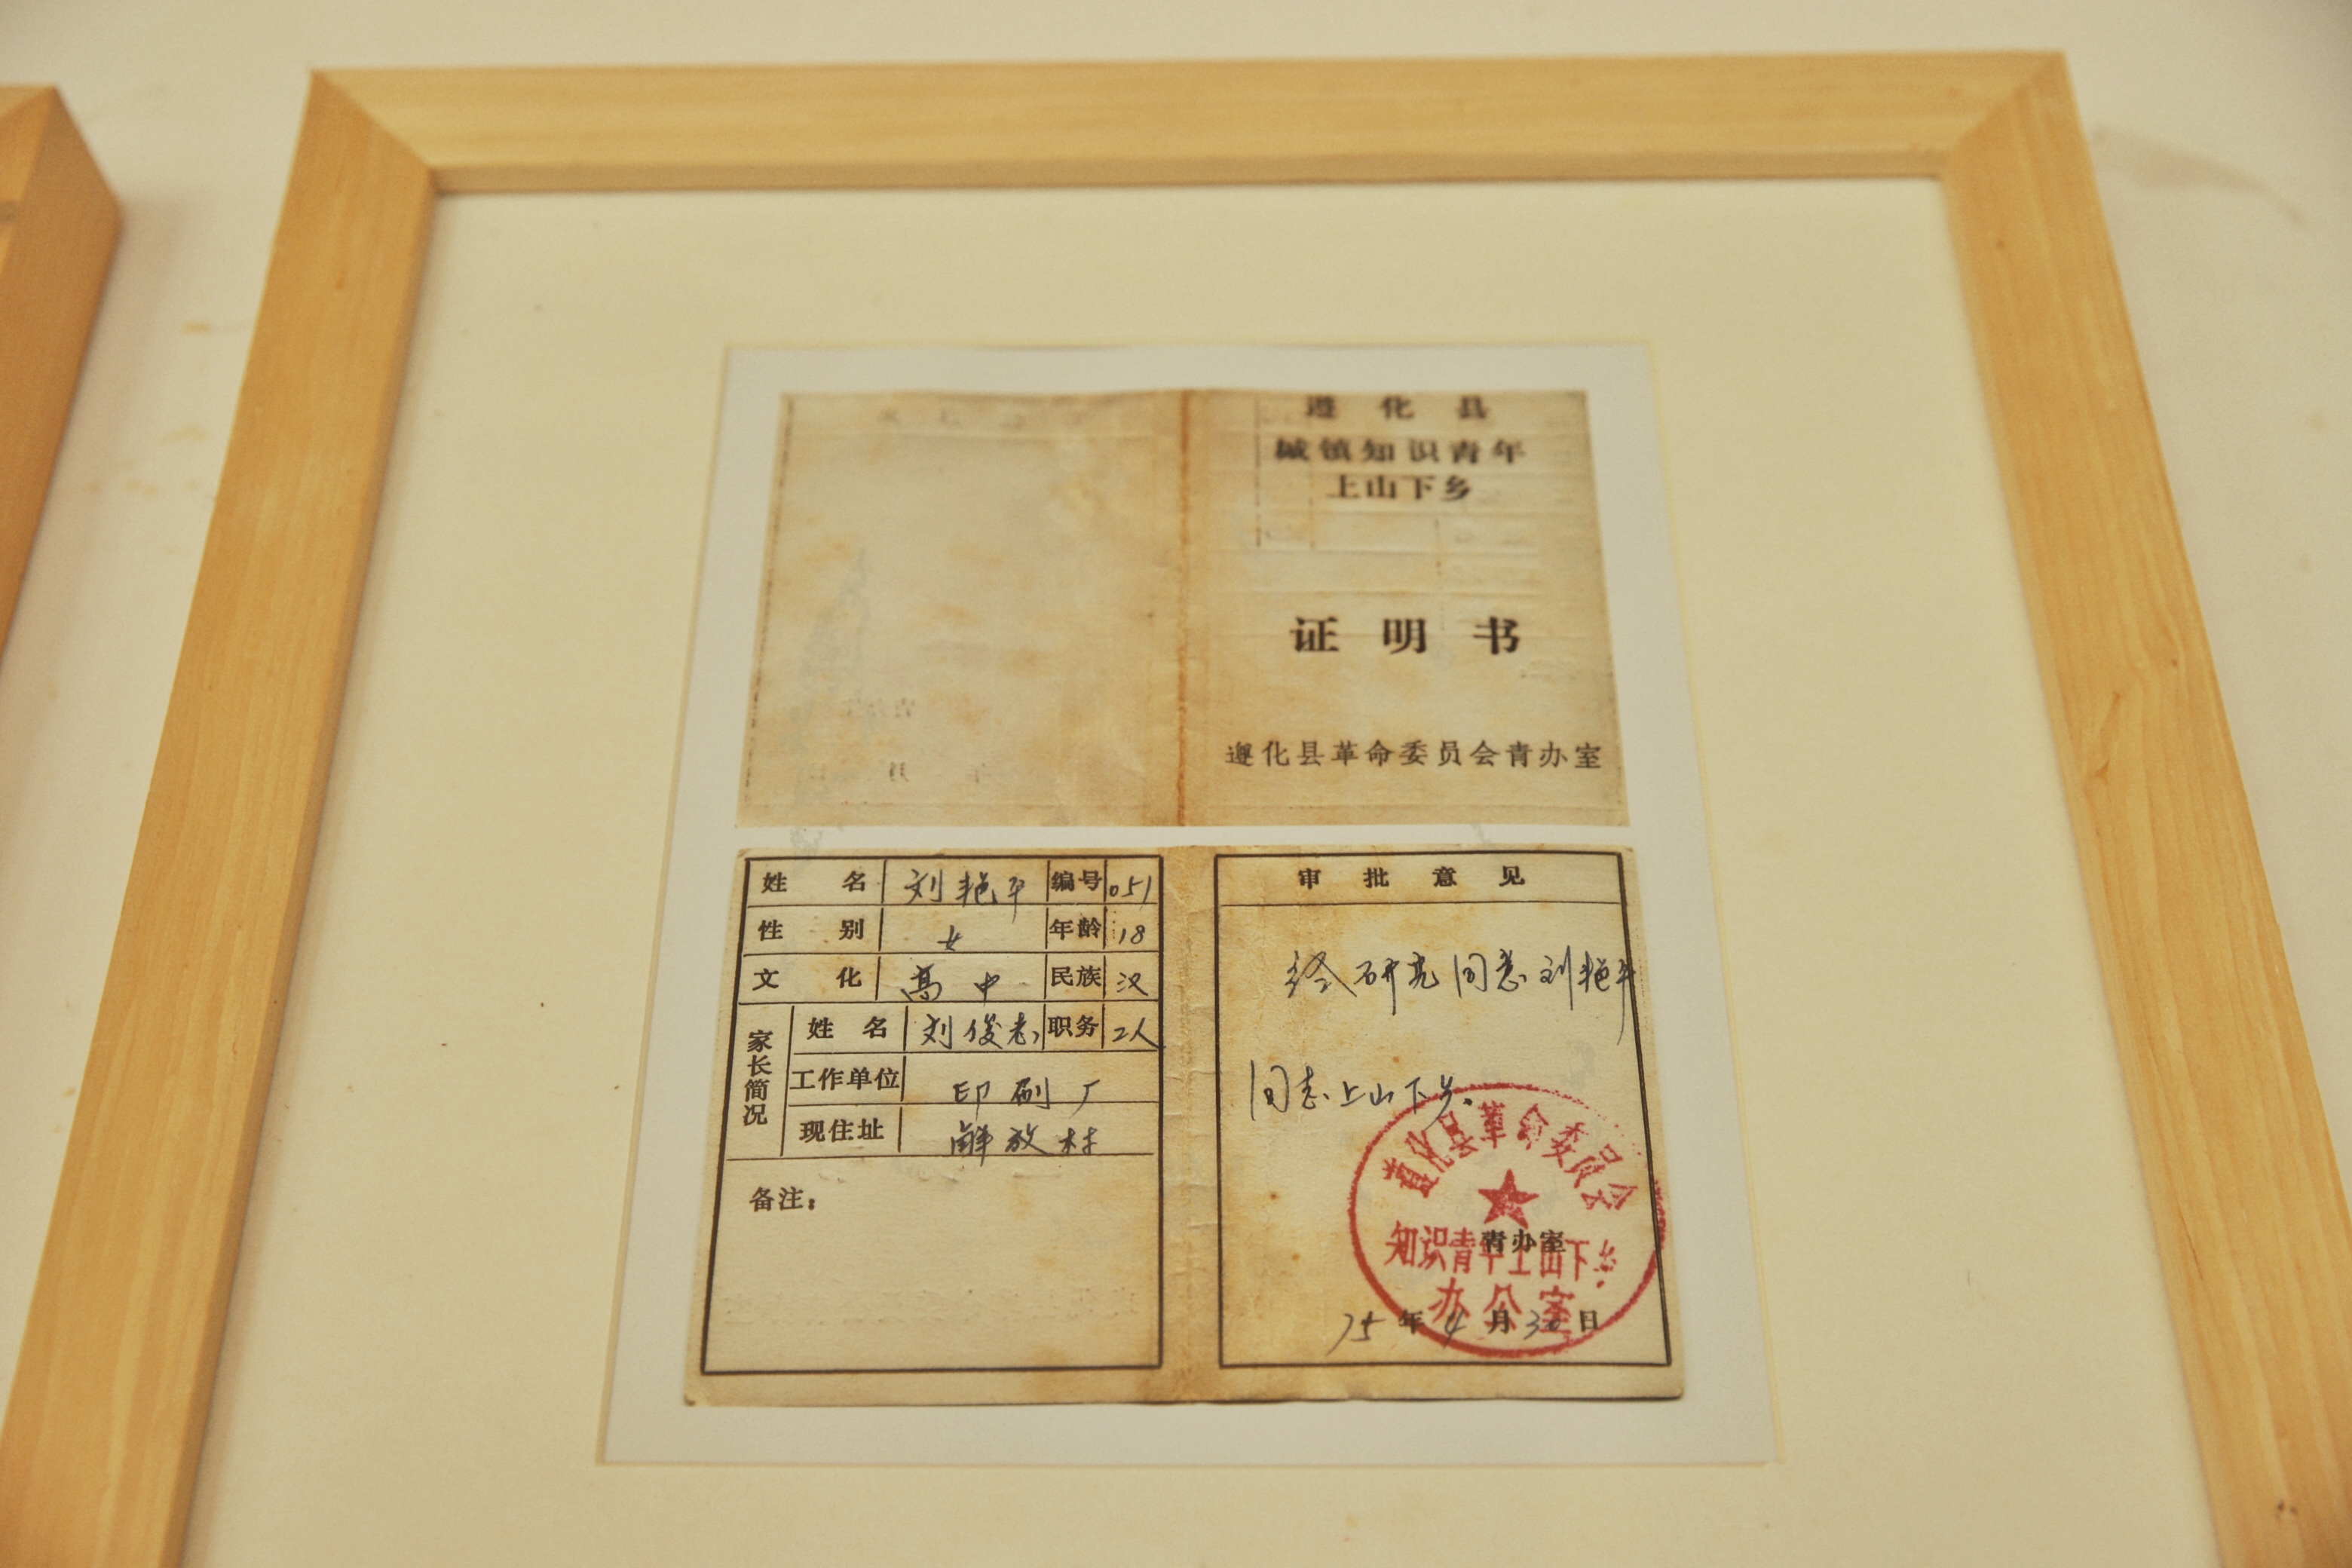 遵化县
城镇知识青年
上山下乡
证明书
遵化县革命委员会青办室
姓名 刘艳平 编号 051
性别 女 年龄 18
文化 高中 民族 汉
家长简况
姓名 刘俊志 职务 工人
工作单位 印刷厂
现住址 解放村
备注：
审批意见
经研究同意刘艳平
同志上山下乡.
遵化县革命委员会
青办室
知识青年上山下乡
办公室
75年4月30日